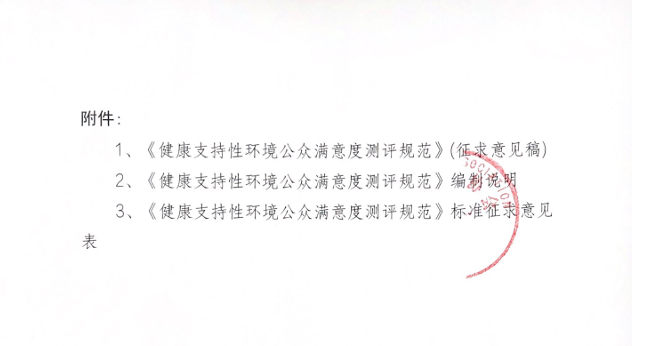 附件：
1、《健康支持性环境公众满意度测评规范》(征求意见稿)
2、《健康支持性环境公众满意度测评规范》编制说明
3、《健康支持性环境公众满意度测评规范》标准征求意见
表